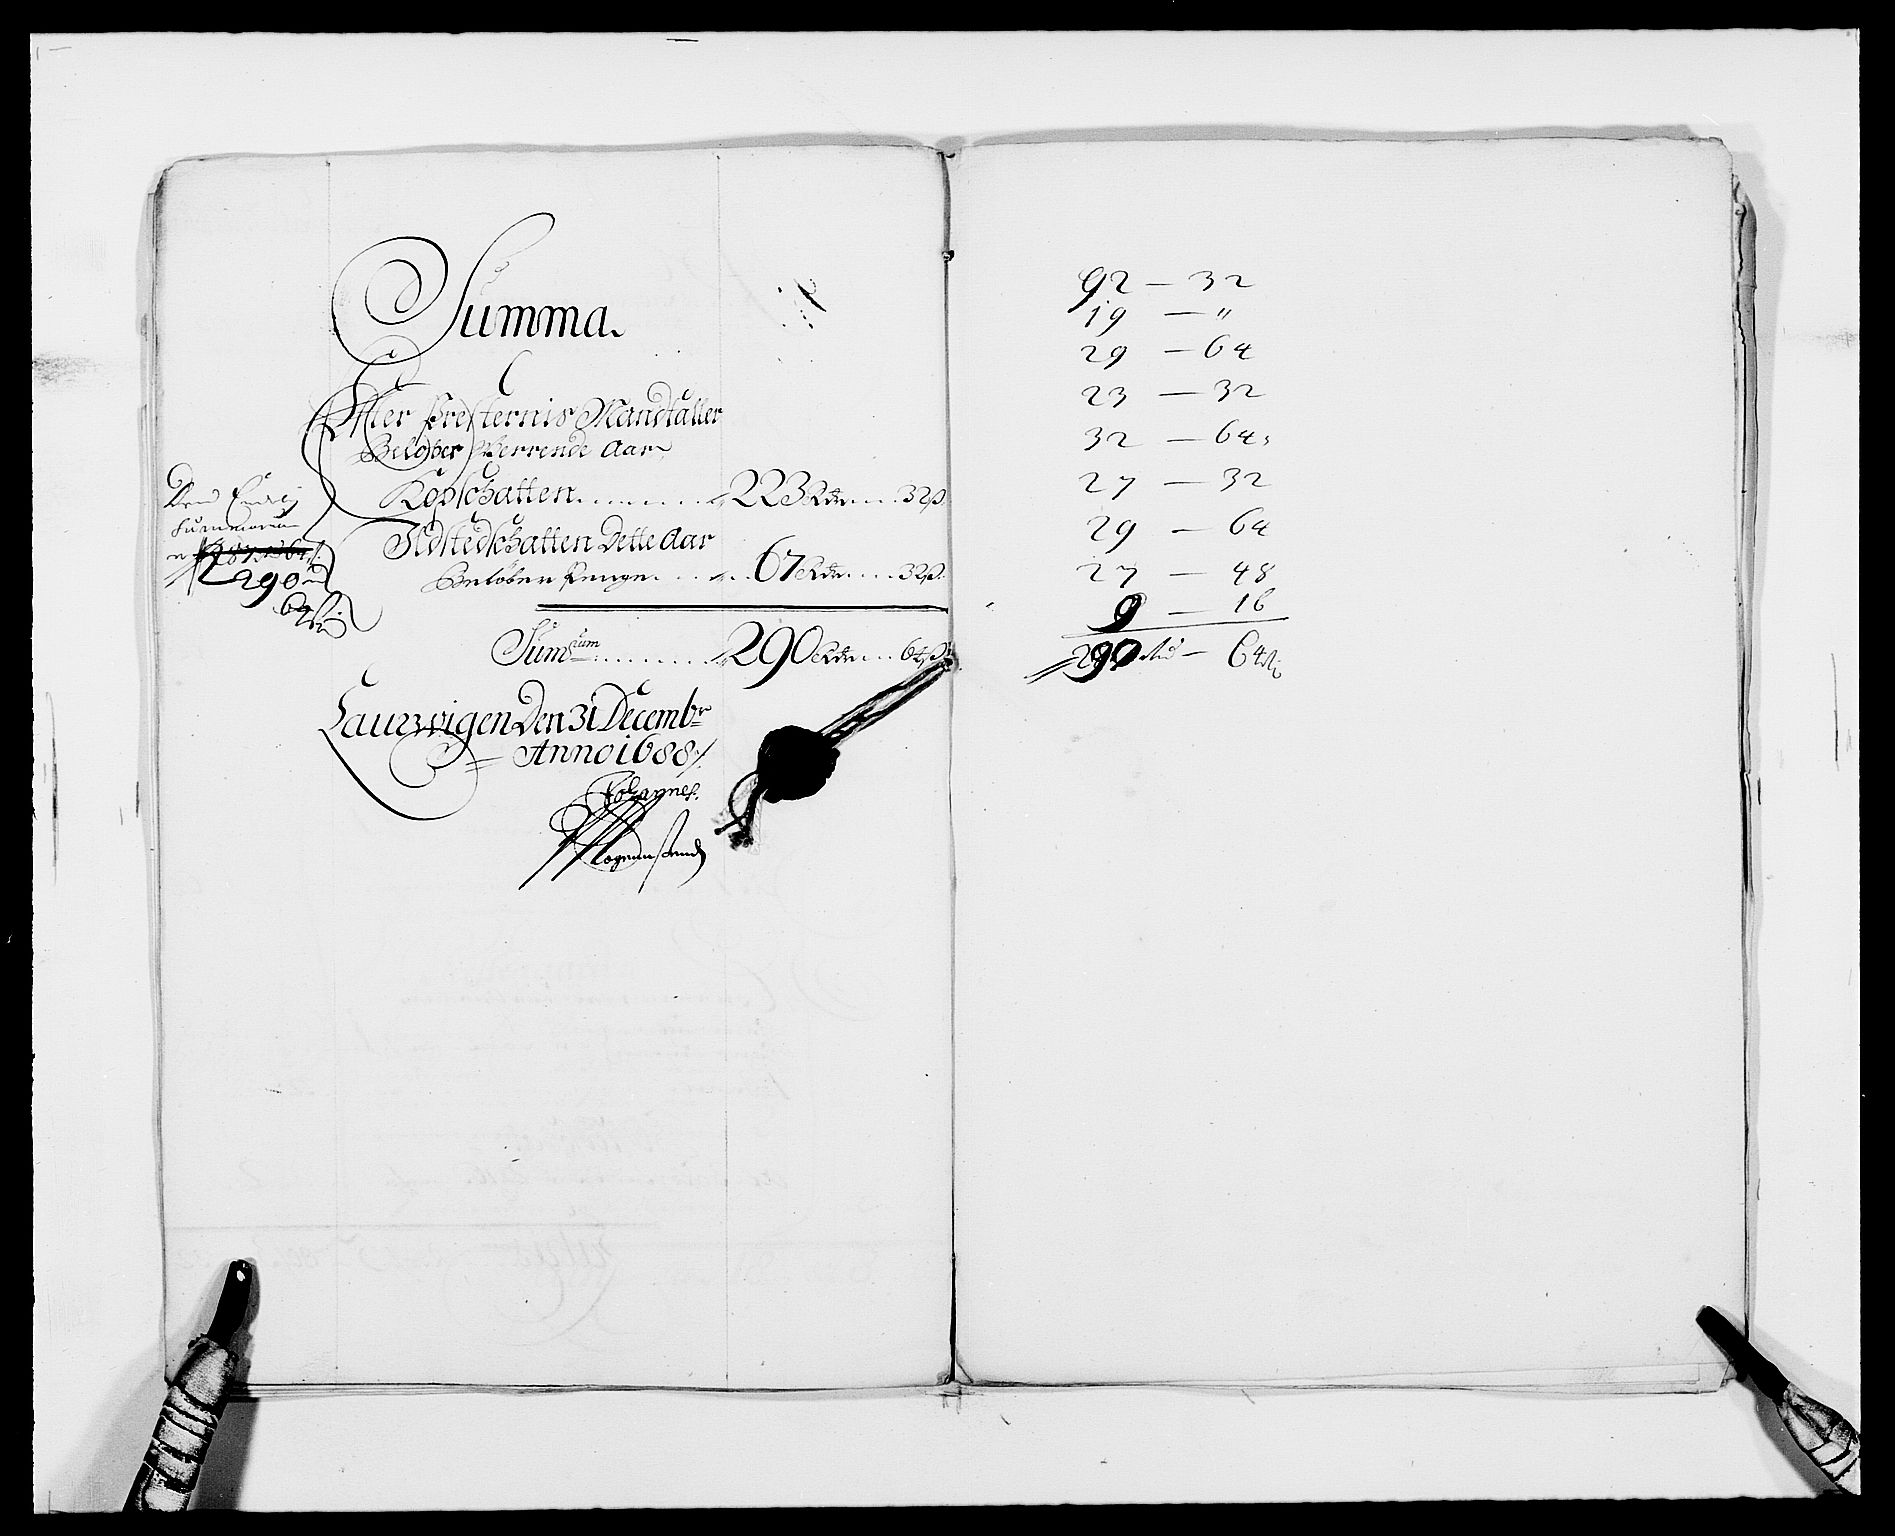 Summa.
Effter Presternis Mandtaller
Beløber Werrende Aar
Kopschatten ........ 223 Rdr .... 32 ß.
Ildstedschatten Dette Aar
Beløben Penge ..... 67 Rdr .... 32 ß.
Sum̅rum ........ 290 Rdr ... 64 ß.
Laurwigen Den 31 Decembr
Anno 1688 ./.
Johannes
Den
Summarum
290
64 ß
92 — 32
19 — "
29 — 64
23 — 32
32 — 64
27 — 32
29 — 64
27 — 48
9 — 16
290 Rd — 64 ß